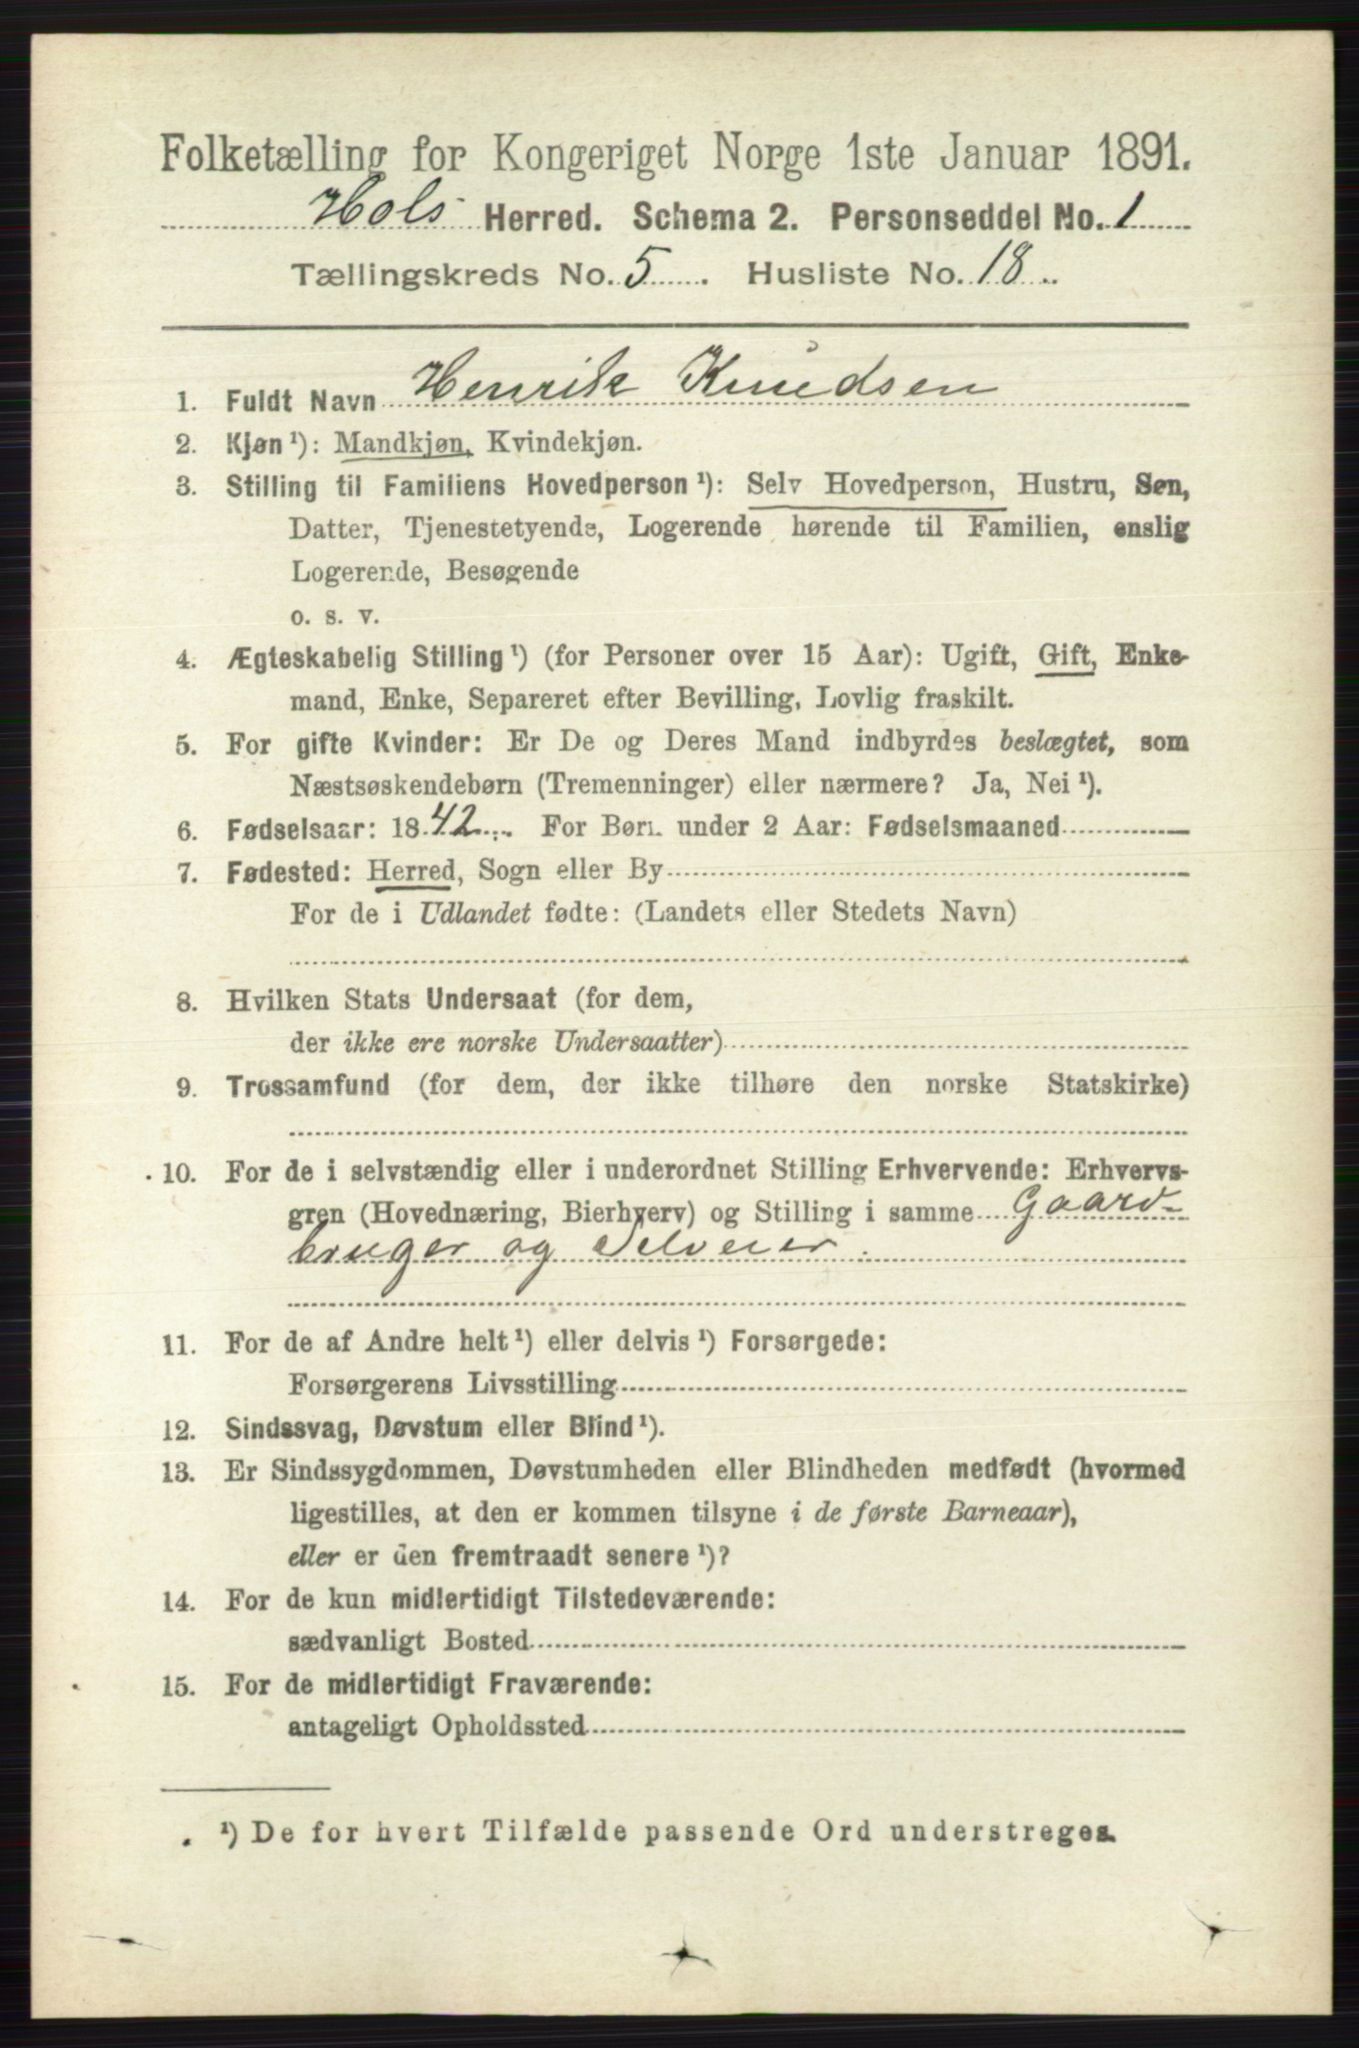 Folketælling for Kongeriget Norge 1ste Januar 1891.
Hols Herred. Schema 2. Personseddel No. 1
Tællingskreds No. 5. Husliste No. 18.
1. Fuldt Navn Henrik Knudsen
2. Kjøn ¹): Mandkjøn, Kvindekjøn.
3. Stilling til Familiens Hovedperson ¹): Selv Hovedperson, Hustru, Søn,
Datter, Tjenestetyende, Logerende hørende til Familien, enslig
Logerende, Besøgende
o. s. v.
4. Ægteskabelig Stilling ¹) (for Personer over 15 Aar): Ugift, Gift, Enke-
mand, Enke, Separeret efter Bevilling, Lovlig fraskilt.
5. For gifte Kvinder: Er De og Deres Mand indbyrdes beslægtet, som
Næstsøskendebørn (Tremenninger) eller nærmere? Ja, Nei ¹).
6. Fødselsaar: 1842. For Børn under 2 Aar: Fødselsmaaned
7. Fødested: Herred, Sogn eller By
For de i Udlandet fødte: (Landets eller Stedets Navn)
8. Hvilken Stats Undersaat (for dem,
der ikke ere norske Undersaatter)
9. Trossamfund (for dem, der ikke tilhøre den norske Statskirke)
10. For de i selvstændig eller i underordnet Stilling Erhvervende: Erhvervs-
gren (Hovednæring, Bierhverv) og Stilling i samme Gaard-
bruger og Selveier.
11. For de af Andre helt ¹) eller delvis ¹) Forsørgede:
Forsørgerens Livsstilling
12. Sindssvag, Døvstum eller Blind ¹).
13. Er Sindssygdommen, Døvstumheden eller Blindheden medfødt (hvormed
ligestilles, at den er kommen tilsyne i de første Barneaar),
eller er den fremtraadt senere ¹)?
14. For de kun midlertidigt Tilstedeværende:
sædvanligt Bosted
15. For de midlertidigt Fraværende:
antageligt Opholdssted
¹) De for hvert Tilfælde passende Ord understreges.